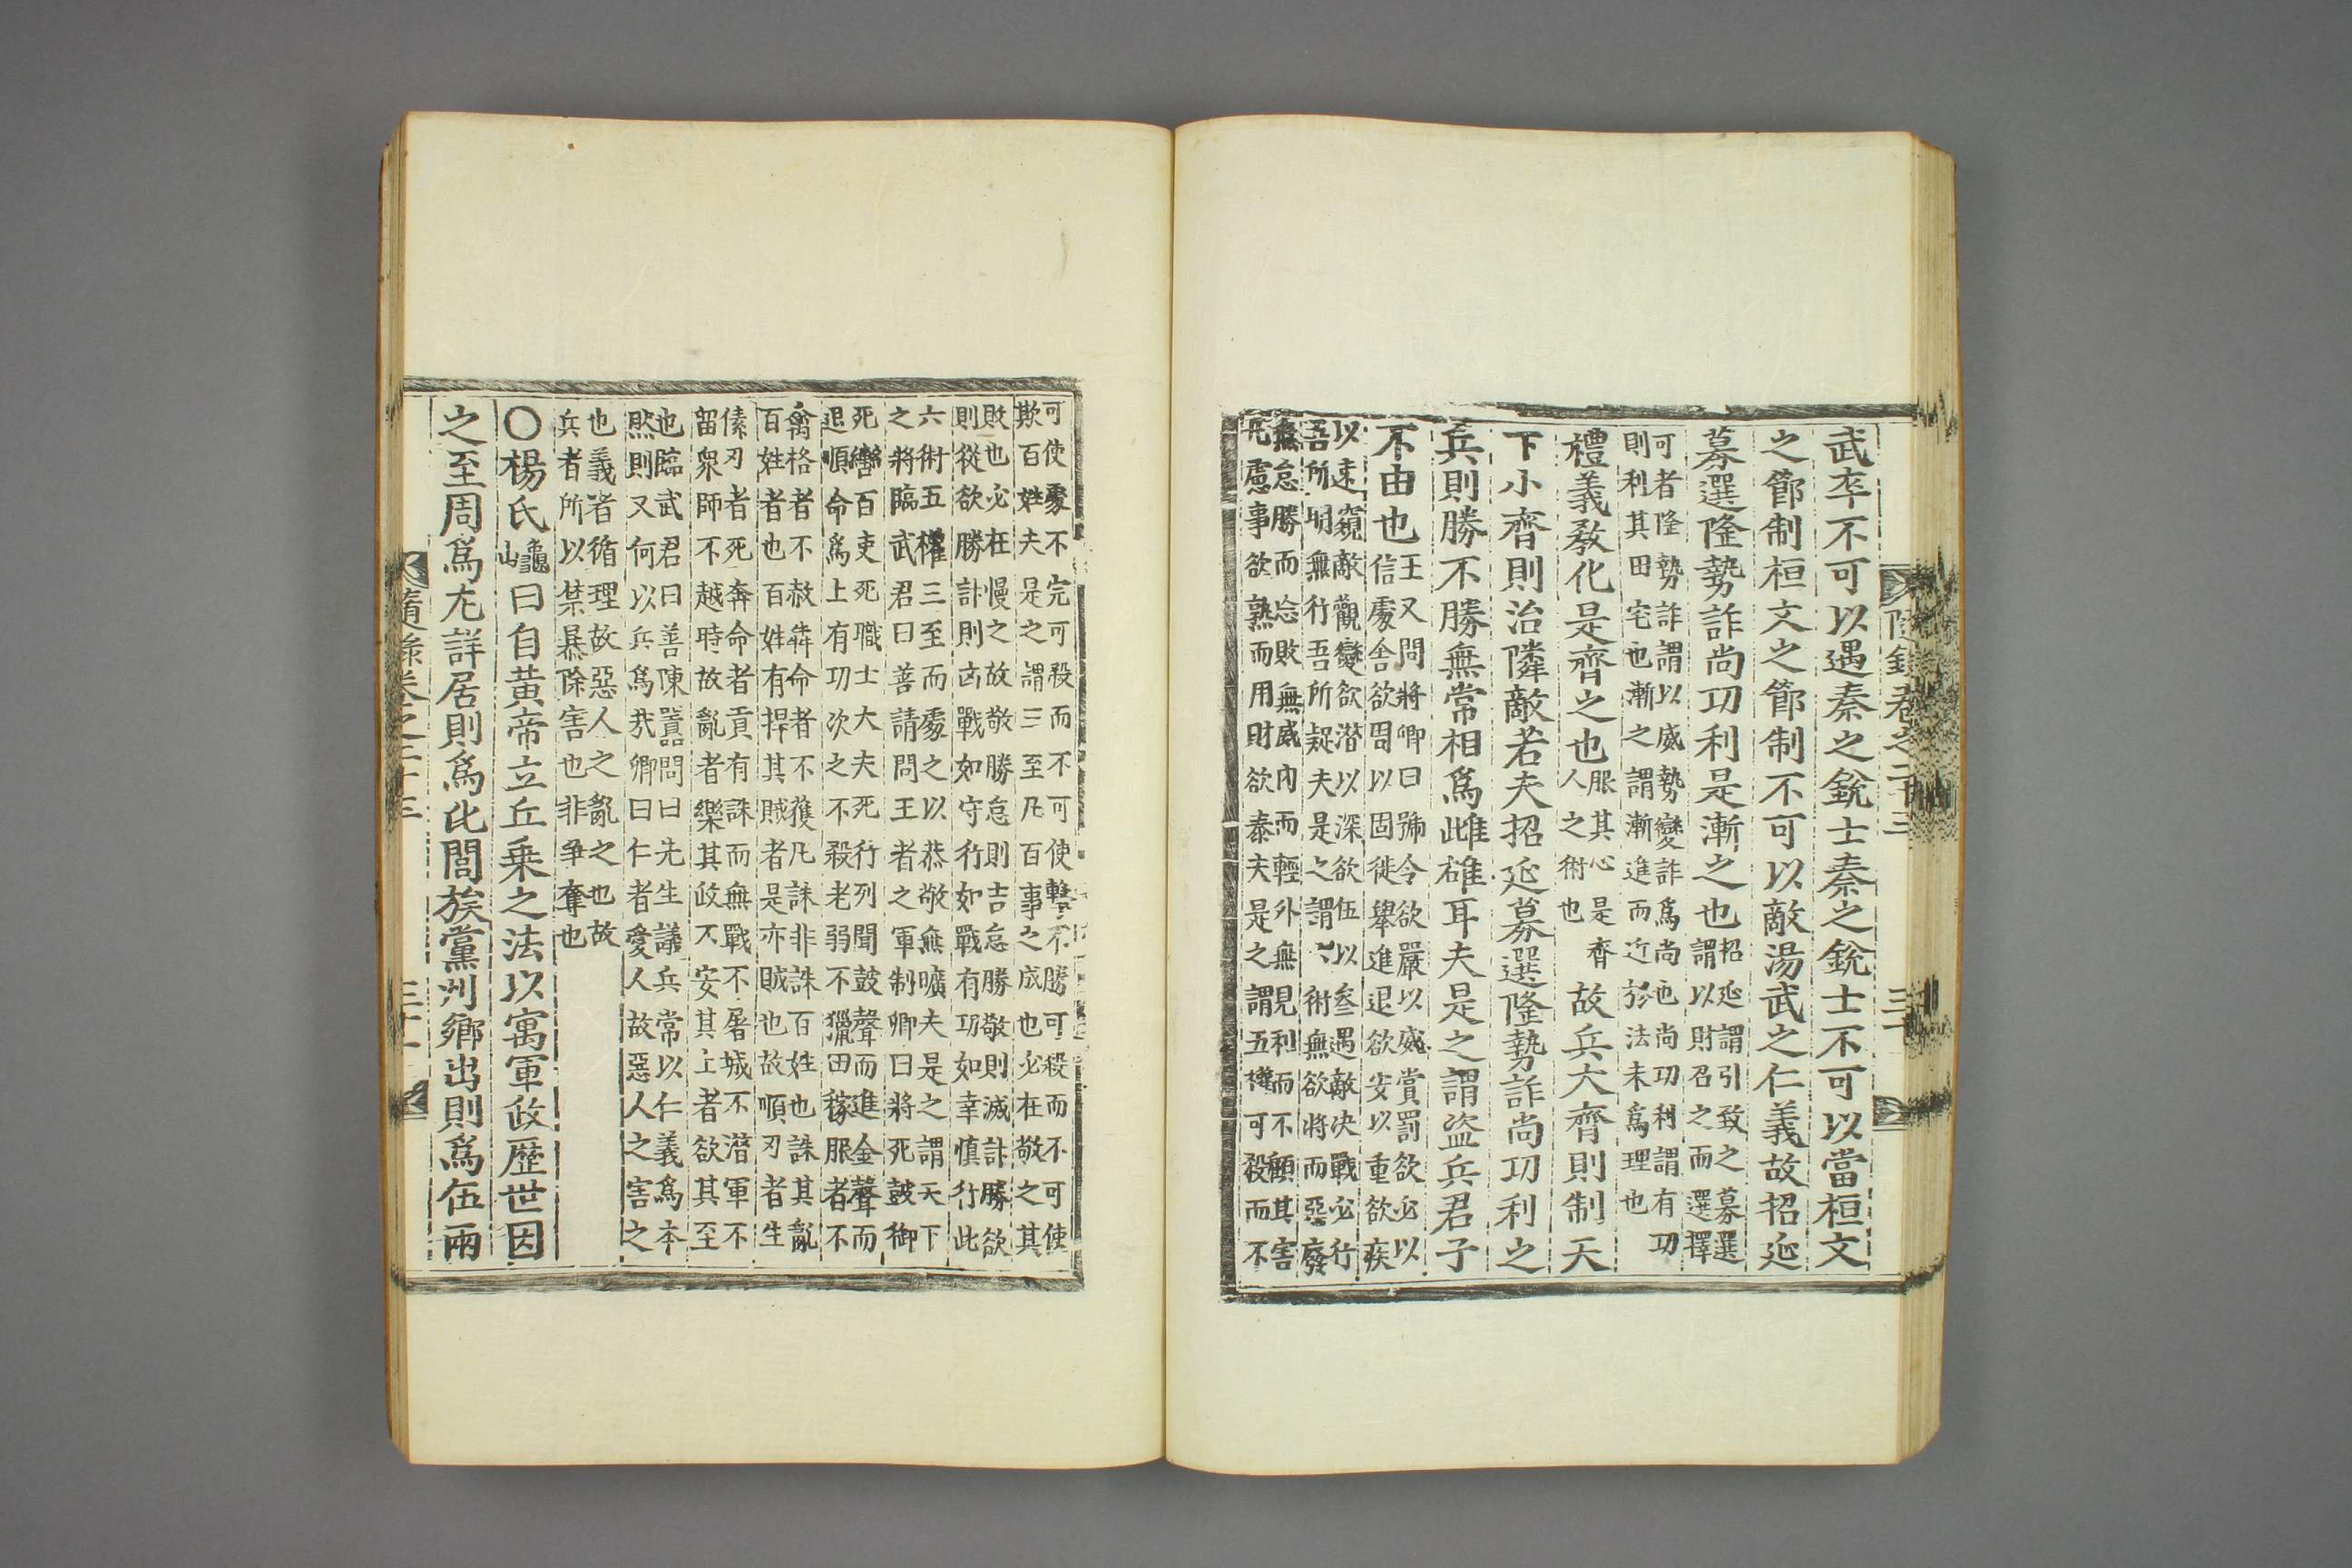 隨錄卷之二十三　三十
武卒不可以遇秦之銳士秦之銳士不可以當桓文
之節制桓文之節制不可以敵湯武之仁義故招延
募選隆勢詐尚功利是漸之也招延謂引致之募選
謂以財召之而選擇
可者隆勢詐謂以威勢變詐爲尚也尚功利謂有功
則利其田宅也漸之謂漸進而近於法未爲理也
禮義敎化是齊之也服其心是齊人之術也故兵大齊則制天
下小齊則治隣敵若夫招延募選隆勢詐尚功利之
兵則勝不勝無常相爲雌雄耳夫是之謂盜兵君子
不由也王又問將卿曰號令欲嚴以威賞罰欲必以
信處舍欲周以固徙舉進退欲安以重欲疾
以速窺敵觀變欲潜以深欲伍以參遇敵决戰必行
吾所明無行吾所疑夫是之謂六術無欲將而惡廢
無怠勝而忘敗無威內而輕外無見利而不顧其害
凡慮事欲熟而用財欲泰夫是之謂五權可殺而不
可使處不完可殺而不可使擊不勝可殺而不可使
欺百姓夫是之謂三至凡百事之成也必在敬之其
敗也必在慢之故敬勝怠則吉怠勝敬則滅計勝欲
則從欲勝計則凶戰如守行如戰有功如幸愼行此
六術五權三至而處之以恭敬無曠夫是之謂天下
之將臨武君曰善請問王者之軍制卿曰將死鼓御
死轡百吏死職士大夫死行列聞鼓聲而進金聲而
退順命爲上有功次之不殺老弱不獵田稼服者不
禽格者不赦犇命者不獲凡誅非誅百姓也誅其亂
百姓者也百姓有捍其賊者是亦賊也故順刃者生
傃刃者死奔命者貢有誅而無戰不屠城不潜軍不
留衆師不越時故亂者樂其政不安其上者欲其至
也臨武君曰善陳囂問曰先生議兵常以仁義爲本
然則又何以兵爲㢤卿曰仁者愛人故惡人之害之
也義者循理故惡人之亂之也故
兵者所以禁暴除害也非爭奪也
〇楊氏龜山曰自黃帝立丘乗之法以寓軍政歷世因
之至周爲尤詳居則爲比閭族黨州鄕出則爲伍兩
隨錄卷之二十三　三十一